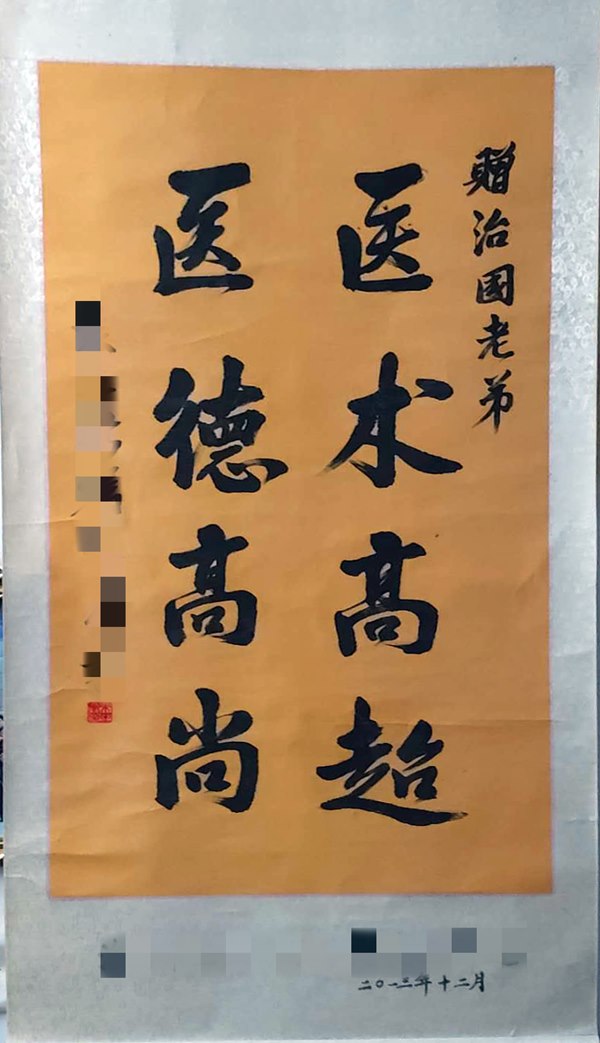 赠治国老弟
医术高超
医德高尚
二〇一三年十二月